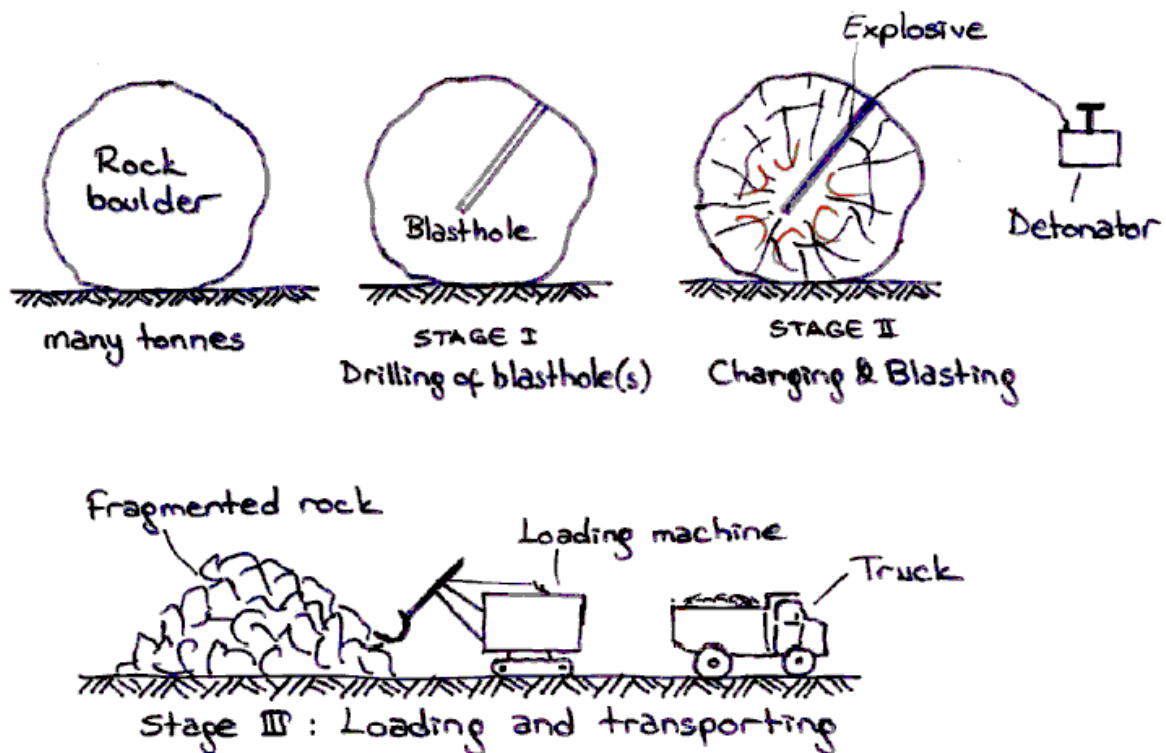 Rock
boulder
many tonnes
Blasthole
STAGE I
Drilling of blasthole(s)
Explosive
Detonator
STAGE II
Changing & Blasting
Fragmented rock
Loading machine
Truck
Stage III : Loading and transporting